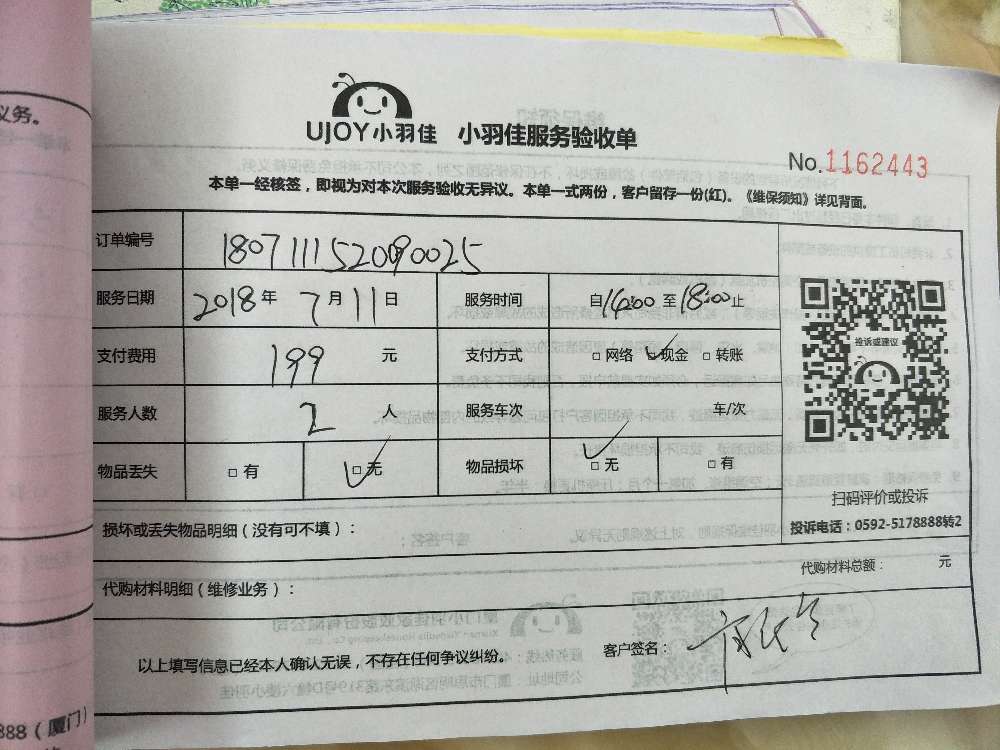 义务。
UJOY小羽佳 小羽佳服务验收单
No.1162443
本单一经核签，即视为对本次服务验收无异议。本单一式两份，客户留存一份(红)。《维保须知》详见背面。
订单编号 180711152090025
服务日期 2018年 7月 11日 服务时间 自14:00 至 18:00止
支付费用 199 元 支付方式 □ 网络 ☑ 现金 □ 转账
投诉或建议
服务人数 2 人 服务车次 车/次
物品丢失 □ 有 ☑ 无 物品损坏 ☑ 无 □ 有
扫码评价或投诉
损坏或丢失物品明细（没有可不填）：
投诉电话：0592-5178888转2
代购材料明细（维修业务）： 代购材料总额： 元
以上填写信息已经本人确认无误，不存在任何争议纠纷。 客户签名：
888（厦门）